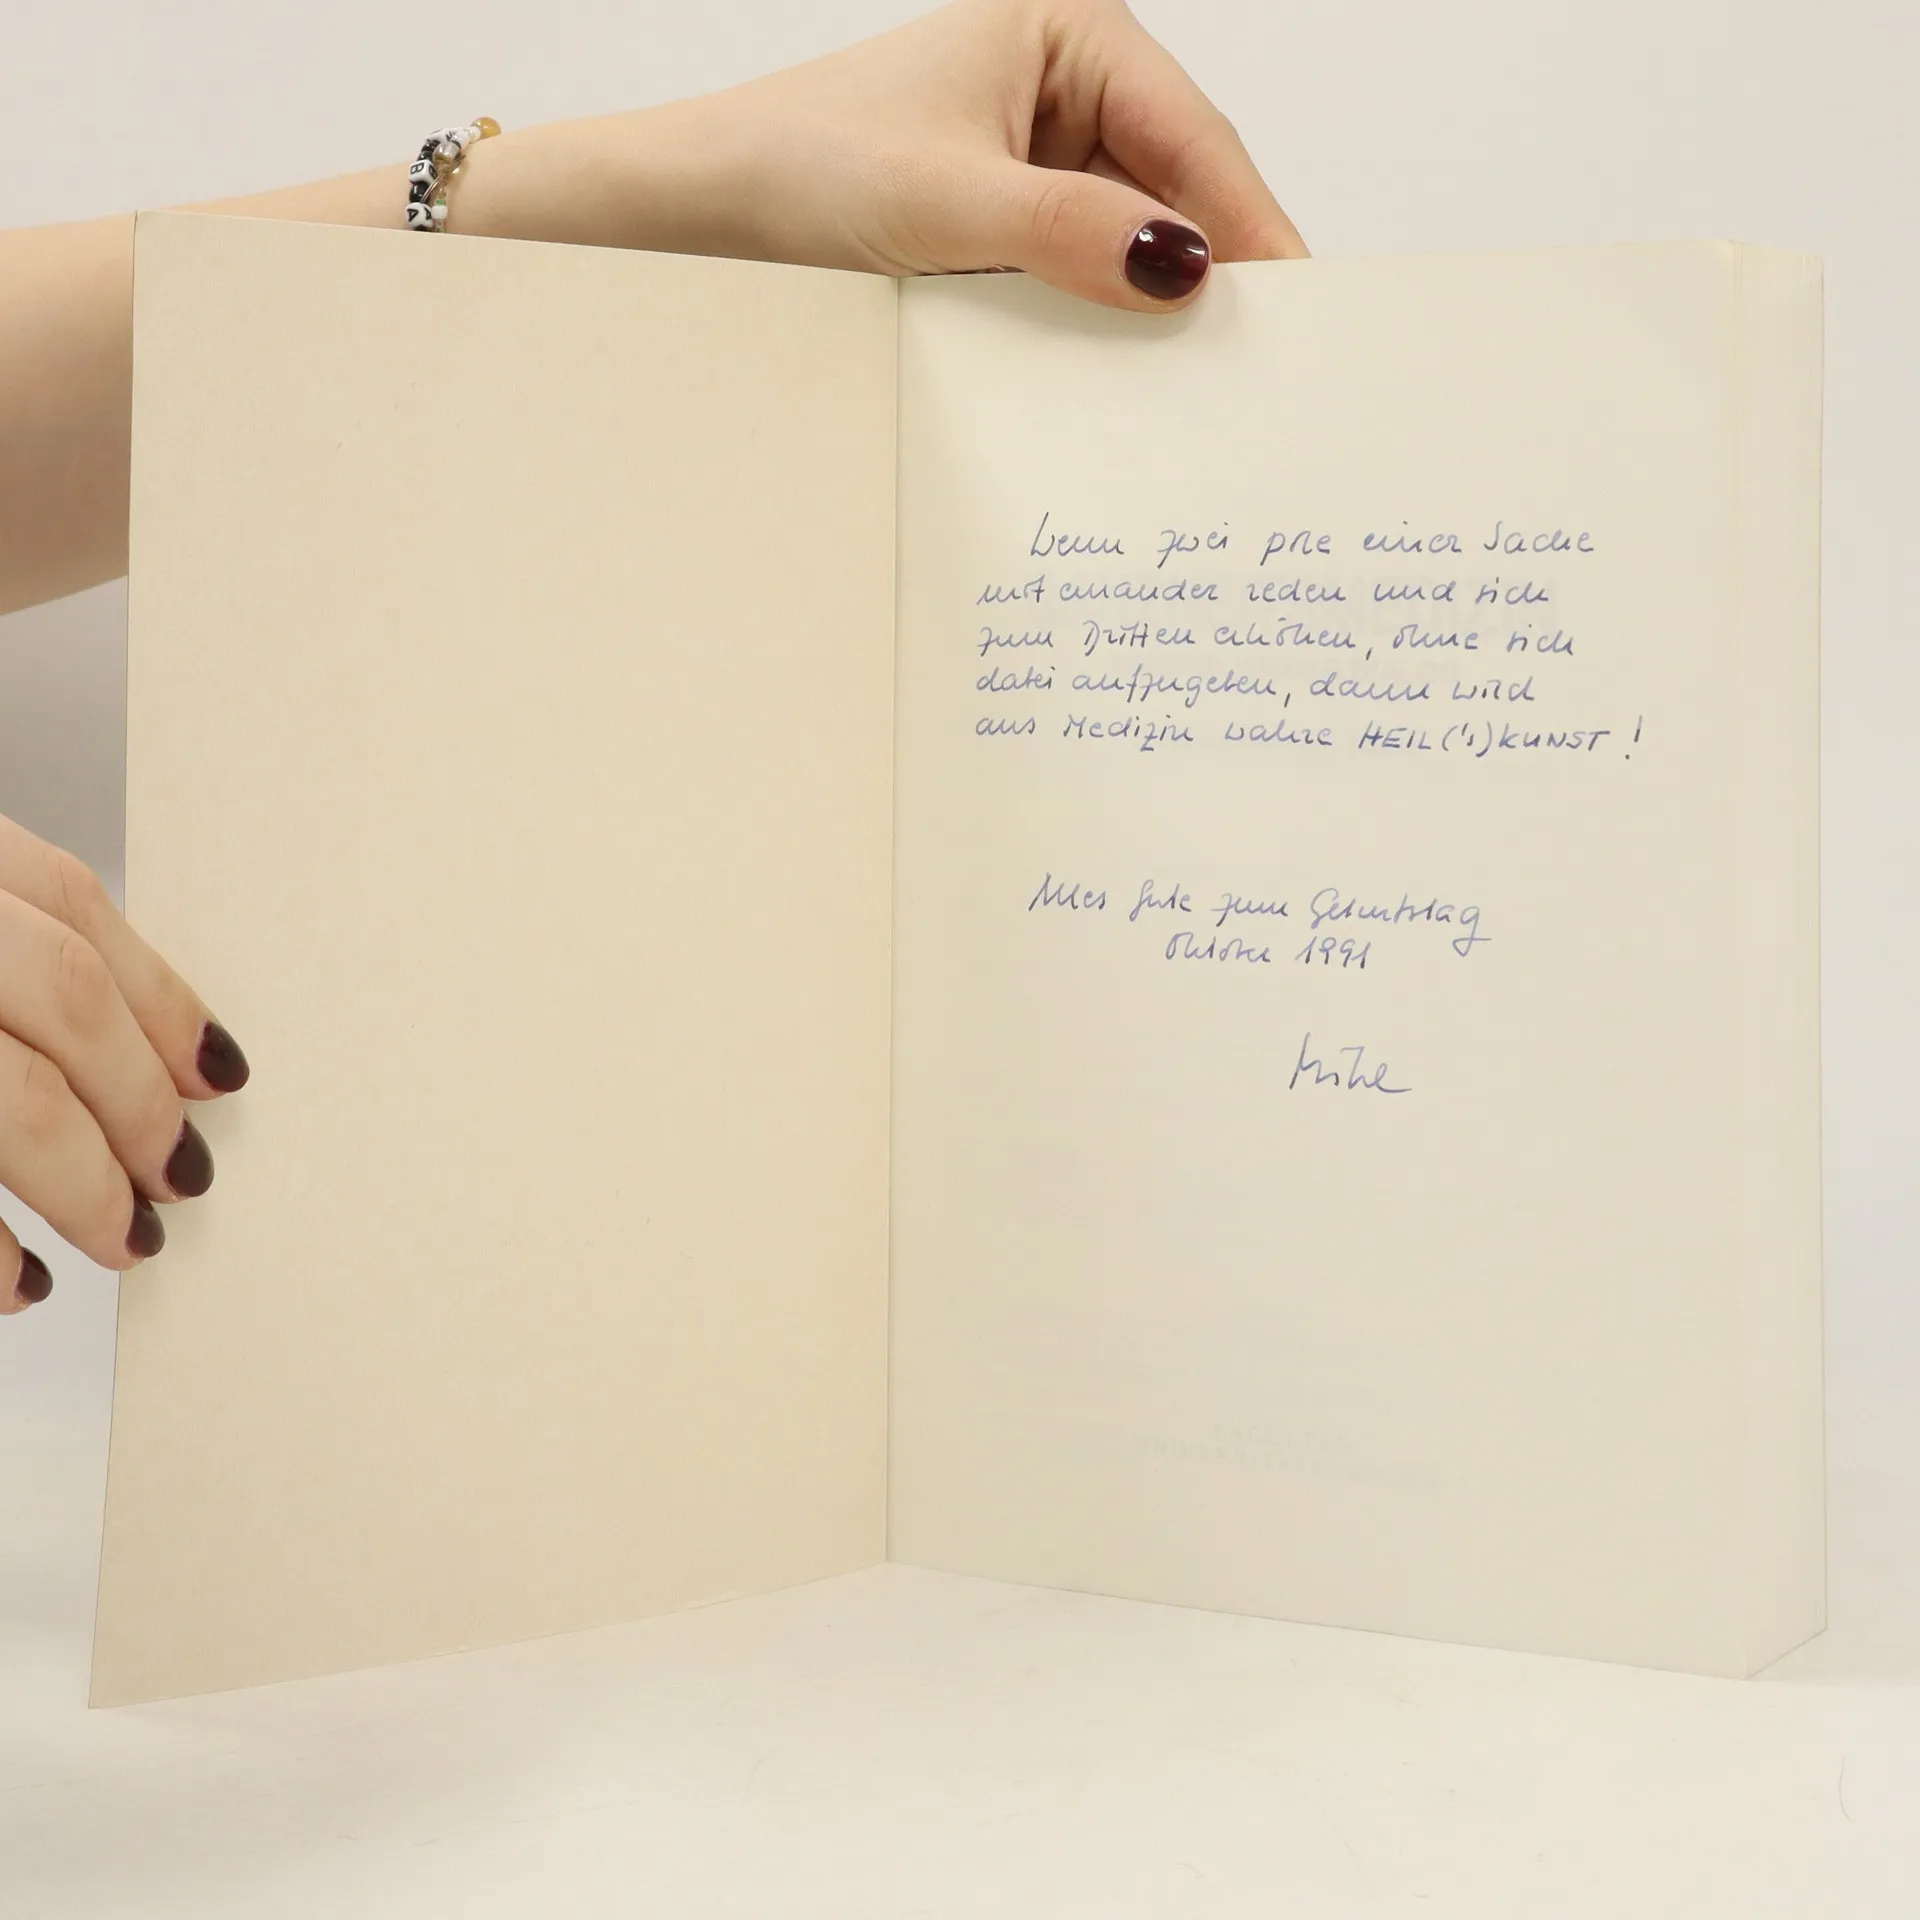 Wenn zwei einer Sache
miteinander reden und sich
zum Dritten erhöhen, ohne sich
dabei aufzugeben, dann wird
aus Medizin wahre HEIL('s)KUNST!
Alles Gute zum Geburtstag
Oktober 1991